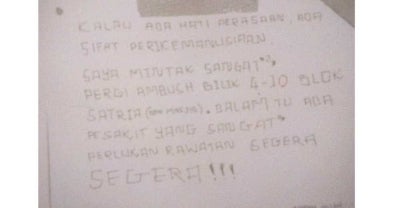 KALAU ADA HATI PERASAAN, ADA
SIFAT PERIKEMANUSIAAN,
SAYA MINTAK SANGAT"
PERGI AMBUSH BILIK 4-10 BLOK
SATRIA . DALAM TU ADA
PESAKIT YANG SANGAT"
PERLUKAN RAWATAN SEGERA
SEGERA!!!